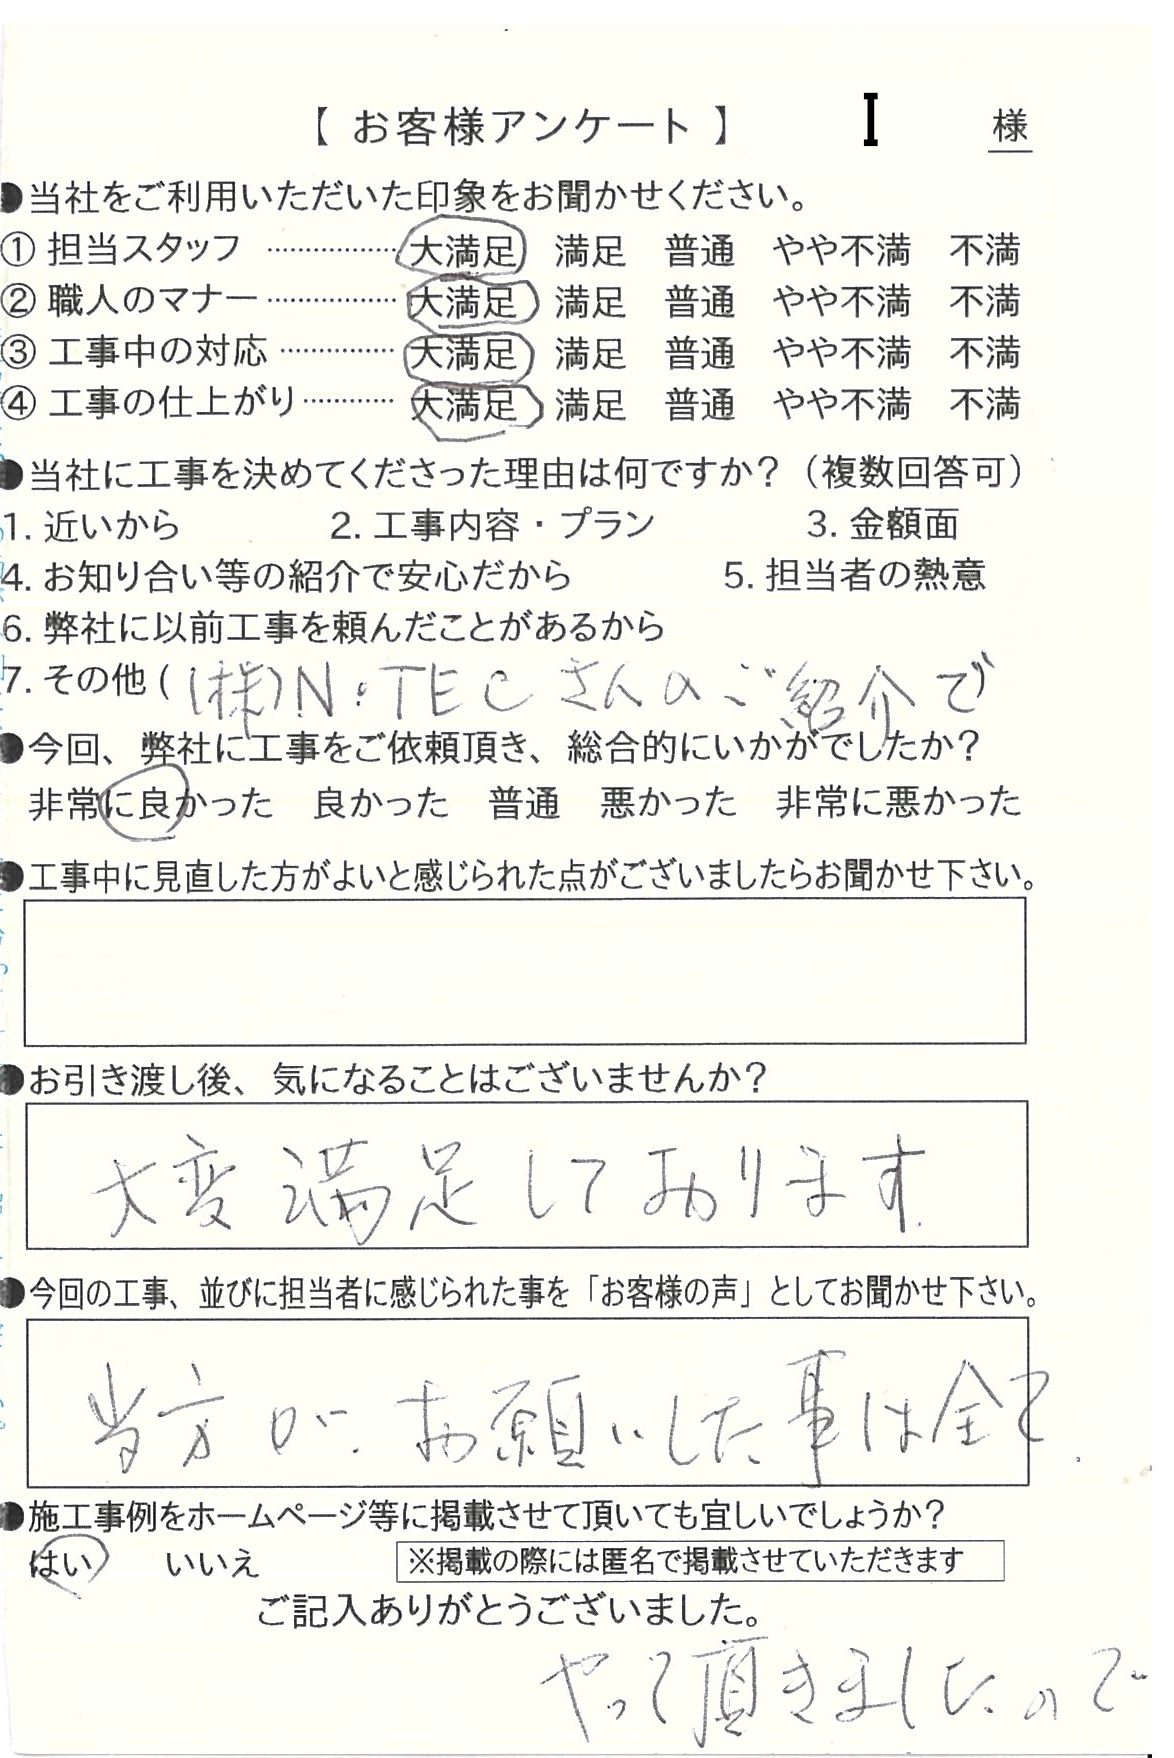 【 お客様アンケート 】 I 様
●当社をご利用いただいた印象をお聞かせください。
① 担当スタッフ ················ 大満足 満足 普通 やや不満 不満
② 職人のマナー ················ 大満足 満足 普通 やや不満 不満
③ 工事中の対応 ·············· 大満足 満足 普通 やや不満 不満
④ 工事の仕上がり ··········· 大満足 満足 普通 やや不満 不満
●当社に工事を決めてくださった理由は何ですか？（複数回答可）
1. 近いから 2. 工事内容・プラン 3. 金額面
4. お知り合い等の紹介で安心だから 5. 担当者の熱意
6. 弊社に以前工事を頼んだことがあるから
7. その他 ( (株)N・TECさんのご紹介で
●今回、弊社に工事をご依頼頂き、総合的にいかがでしたか？
非常に良かった 良かった 普通 悪かった 非常に悪かった
●工事中に見直した方がよいと感じられた点がございましたらお聞かせ下さい。
●お引き渡し後、気になることはございませんか？
大変満足しております
●今回の工事、並びに担当者に感じられた事を「お客様の声」としてお聞かせ下さい。
当方が、お願いした事は全て
●施工事例をホームページ等に掲載させて頂いても宜しいでしょうか？
はい いいえ ※掲載の際には匿名で掲載させていただきます
ご記入ありがとうございました。
やって頂きましたので